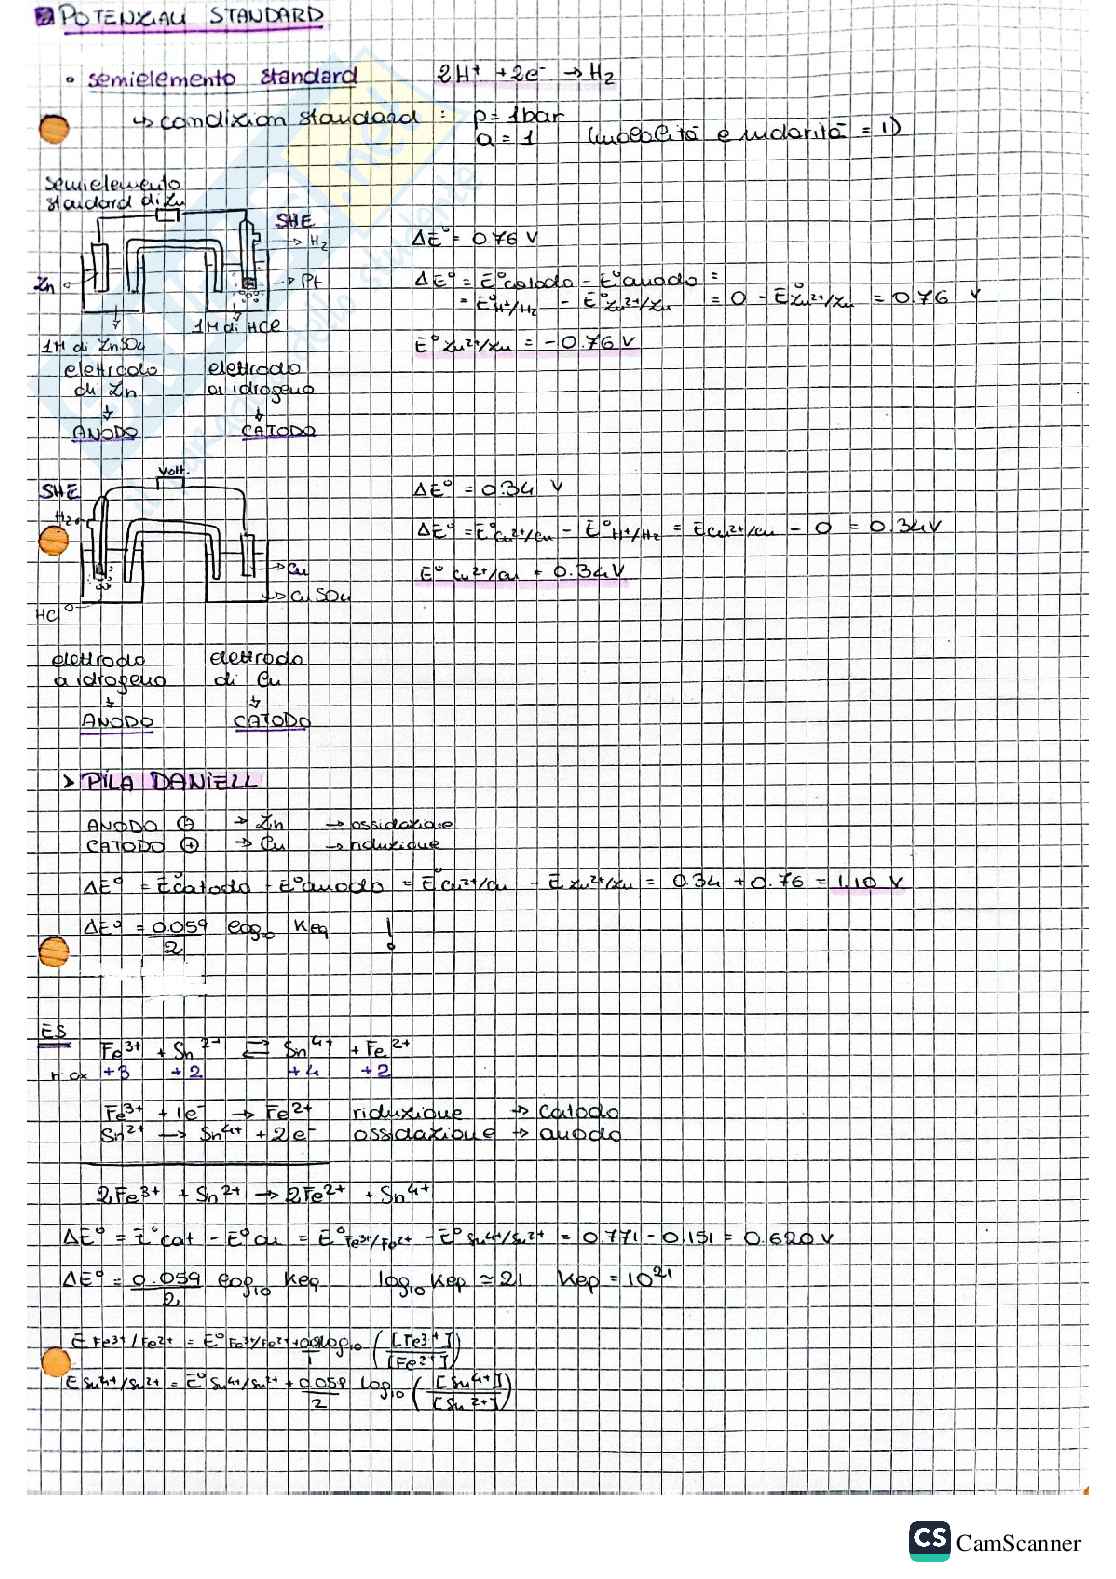 POTENZIALI STANDARD
• semielemento standard 2H⁺ + 2e⁻ → H₂
↳ condizioni standard : p = 1bar
a = 1 (molalità e molarità = 1)
semielemento
standard di Zn
SHE
→ H₂
Zn
→ Pt
1M di HCl
1M di ZnSO₄
elettrodo di Zn
↓
ANODO
elettrodo a idrogeno
↓
CATODO
ΔE° = 0.76 V
ΔE° = E°catodo - E°anodo =
= E°H⁺/H₂ - E°Zn²⁺/Zn = 0 - E°Zn²⁺/Zn = 0.76 V
E°Zn²⁺/Zn = -0.76 V
Volt.
SHE
H₂
→ Cu
→ CuSO₄
HCl
elettrodo a idrogeno
↓
ANODO
elettrodo di Cu
↓
CATODO
ΔE° = 0.34 V
ΔE° = E°Cu²⁺/Cu - E°H⁺/H₂ = ECu²⁺/Cu - 0 = 0.34V
E°Cu²⁺/Cu = 0.34V
> PILA DANIELL
ANODO ⊖ → Zn → ossidazione
CATODO ⊕ → Cu → riduzione
ΔE° = E°catodo - E°anodo = E°Cu²⁺/Cu - E°Zn²⁺/Zn = 0.34 + 0.76 = 1.10 V
ΔE° = 0.059/2 log₁₀ Keq !
ES
Fe³⁺ + Sn²⁺ ⇌ Sn⁴⁺ + Fe²⁺
n ox +3 +2 +4 +2
Fe³⁺ + 1e⁻ → Fe²⁺ riduzione → catodo
Sn²⁺ → Sn⁴⁺ + 2e⁻ ossidazione → anodo
2Fe³⁺ + Sn²⁺ → 2Fe²⁺ + Sn⁴⁺
ΔE° = E°cat - E°an = E°Fe³⁺/Fe²⁺ - E°Sn⁴⁺/Sn²⁺ = 0.771 - 0.151 = 0.620 V
ΔE° = 0.059/2 log₁₀ Keq log₁₀ Keq ≃ 21 Keq = 10²¹
E Fe³⁺/Fe²⁺ = E°Fe³⁺/Fe²⁺ + 0.059/1 log₁₀ ([Fe³⁺]/[Fe²⁺])
E Sn⁴⁺/Sn²⁺ = E°Sn⁴⁺/Sn²⁺ + 0.059/2 log₁₀ ([Sn⁴⁺]/[Sn²⁺])
CS CamScanner